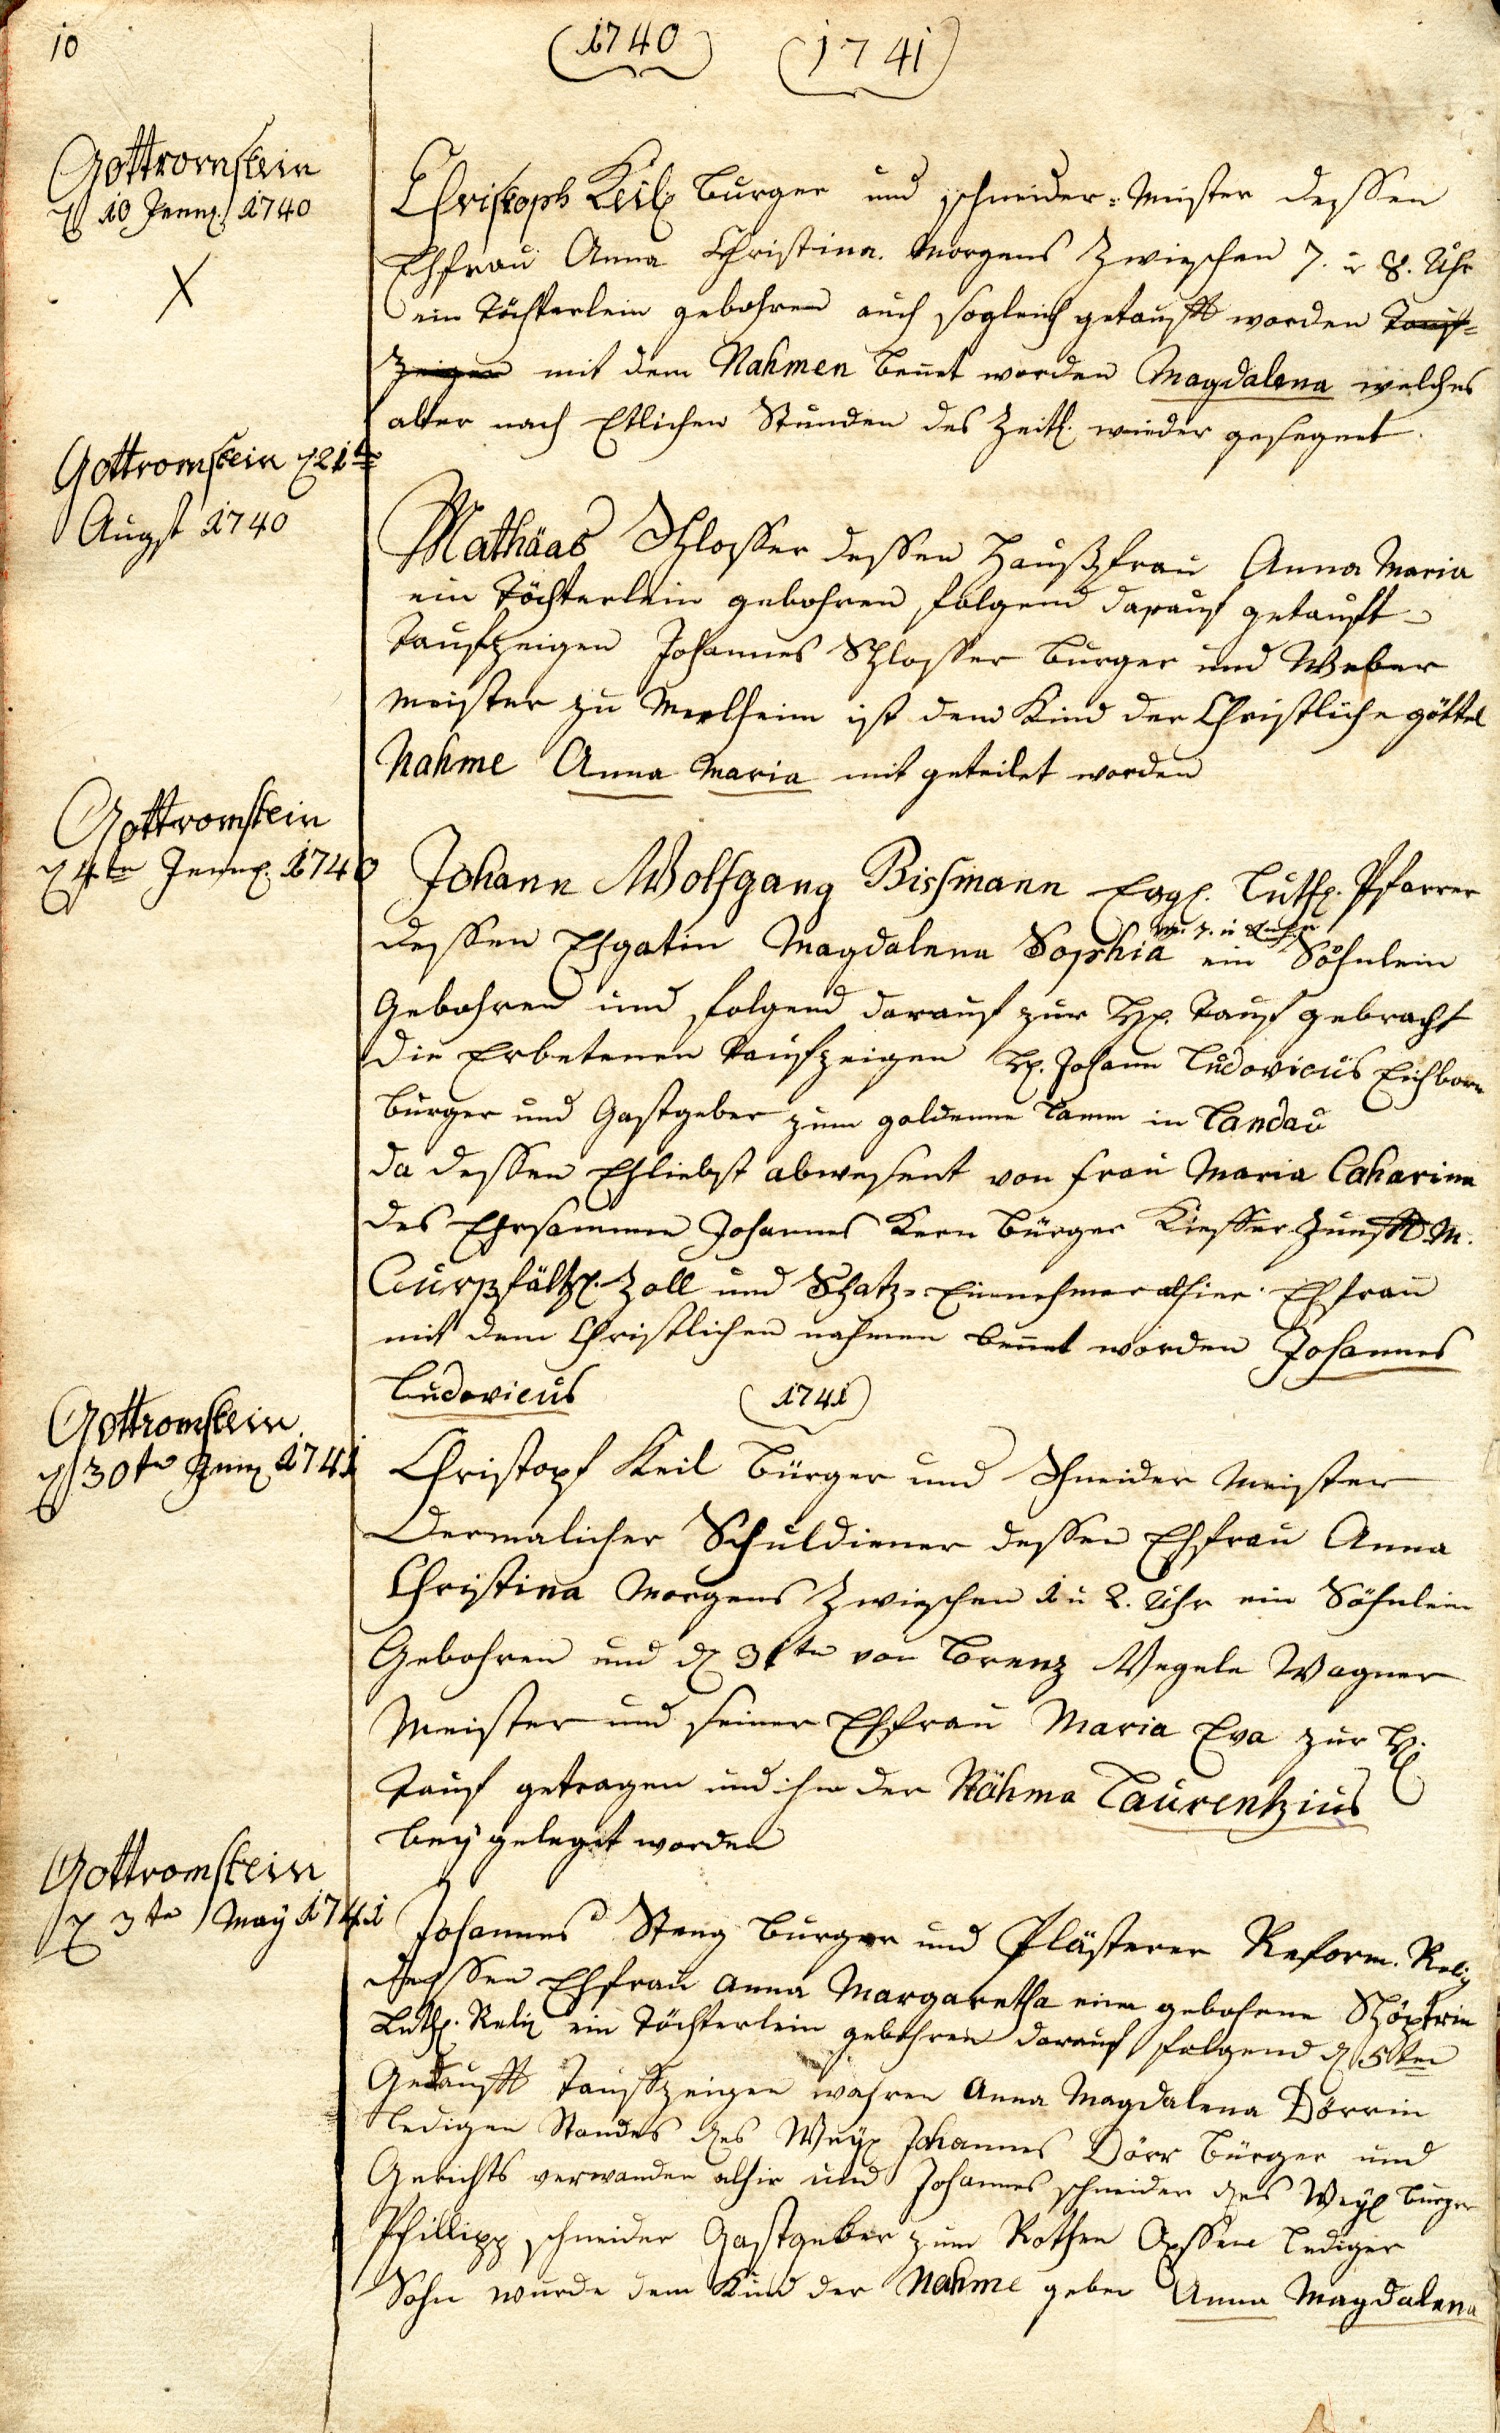 10
1740
1741
Gottromstein
d 10 Jenn. 1740
X
Christoph Keil Burger und schneider-Meister dessen
Ehfrau Anna Christina. Morgens Zwieschen 7. u 8. Uhr
ein Töchterlein gebohren auch sogleich getaufft worden Tauf-
Zeigen mit dem Nahmen benet worden Magdalena welches
aber nach Etlichen Stunden das Zeitl. wieder gesegnet.
Gottromstein d 21te
Augst 1740
Mathäas Schlosser dessen Haußfrau Anna Maria
ein Töchterlein gebohren folgend darauf getauft
Taufzeigen Johannes Schlosser burger und Weber
Meister zu ist dem Kind der Christliche göttel
Nahme Anna Maria mit geteilet worden
Gottromstein
d 4te Jenn. 1740
Johann Wolfgang Bissmann Evgl. Luth. Pfarrer
dessen Ehgatin Magdalena Sophia ein Söhnlein
7. u
Gebohren und folgend darauf zur Hl. Tauf gebracht
die Erbetenen Taufzeigen H. Johann Ludovicus Eichborn
burger und Gastgeber zum goldenne Lamm in Landau
da dessen Ehliebst abwesent von frau Maria Caharina
des Ehrsammen Johannes Kern bürger Kieffer Zunfft M.
Curpfältz. Zoll und Schatz-Einnehmer alhier Ehfrau
mit dem Christlichen nahmen benet worden Johannes
Ludovicus
1741
Gottromstein
d 30te Jenn 1741
Christopf Keil bürger und Schneider Meister
Dermalicher Schuldiener dessen Ehfrau Anna
Christina Morgens Zwieschen 1 u 2. Uhr ein Söhnlein
Gebohren und d 31te von Lorenz Wegele Wagner
Meister und seiner Ehfrau Maria Eva zur Hl.
Tauf getragen und ihm der Nahme Laurentzius
bey geleget worden
Gottromstein
d 3te May 1741
Johannes Steng burger und Plästerer Reform. Relig
dessen Ehfrau Anna Margaretha eine gebohrne
Luth. Relig ein Töchterlein gebohren darauf folgend d 5ten
Getaufft Taufzeigen wahren Anna Magdalena Dörrin
ledigen Standes des Weyl Johannes Dörr bürger und
Gerichts verwanden alhir und Johannes schneider des Weyl burger
Phillipp schneider Gastgeber zum Rothen Ossen lediger
Sohn wurde dem Kind der Nahme geben Anna Magdalena